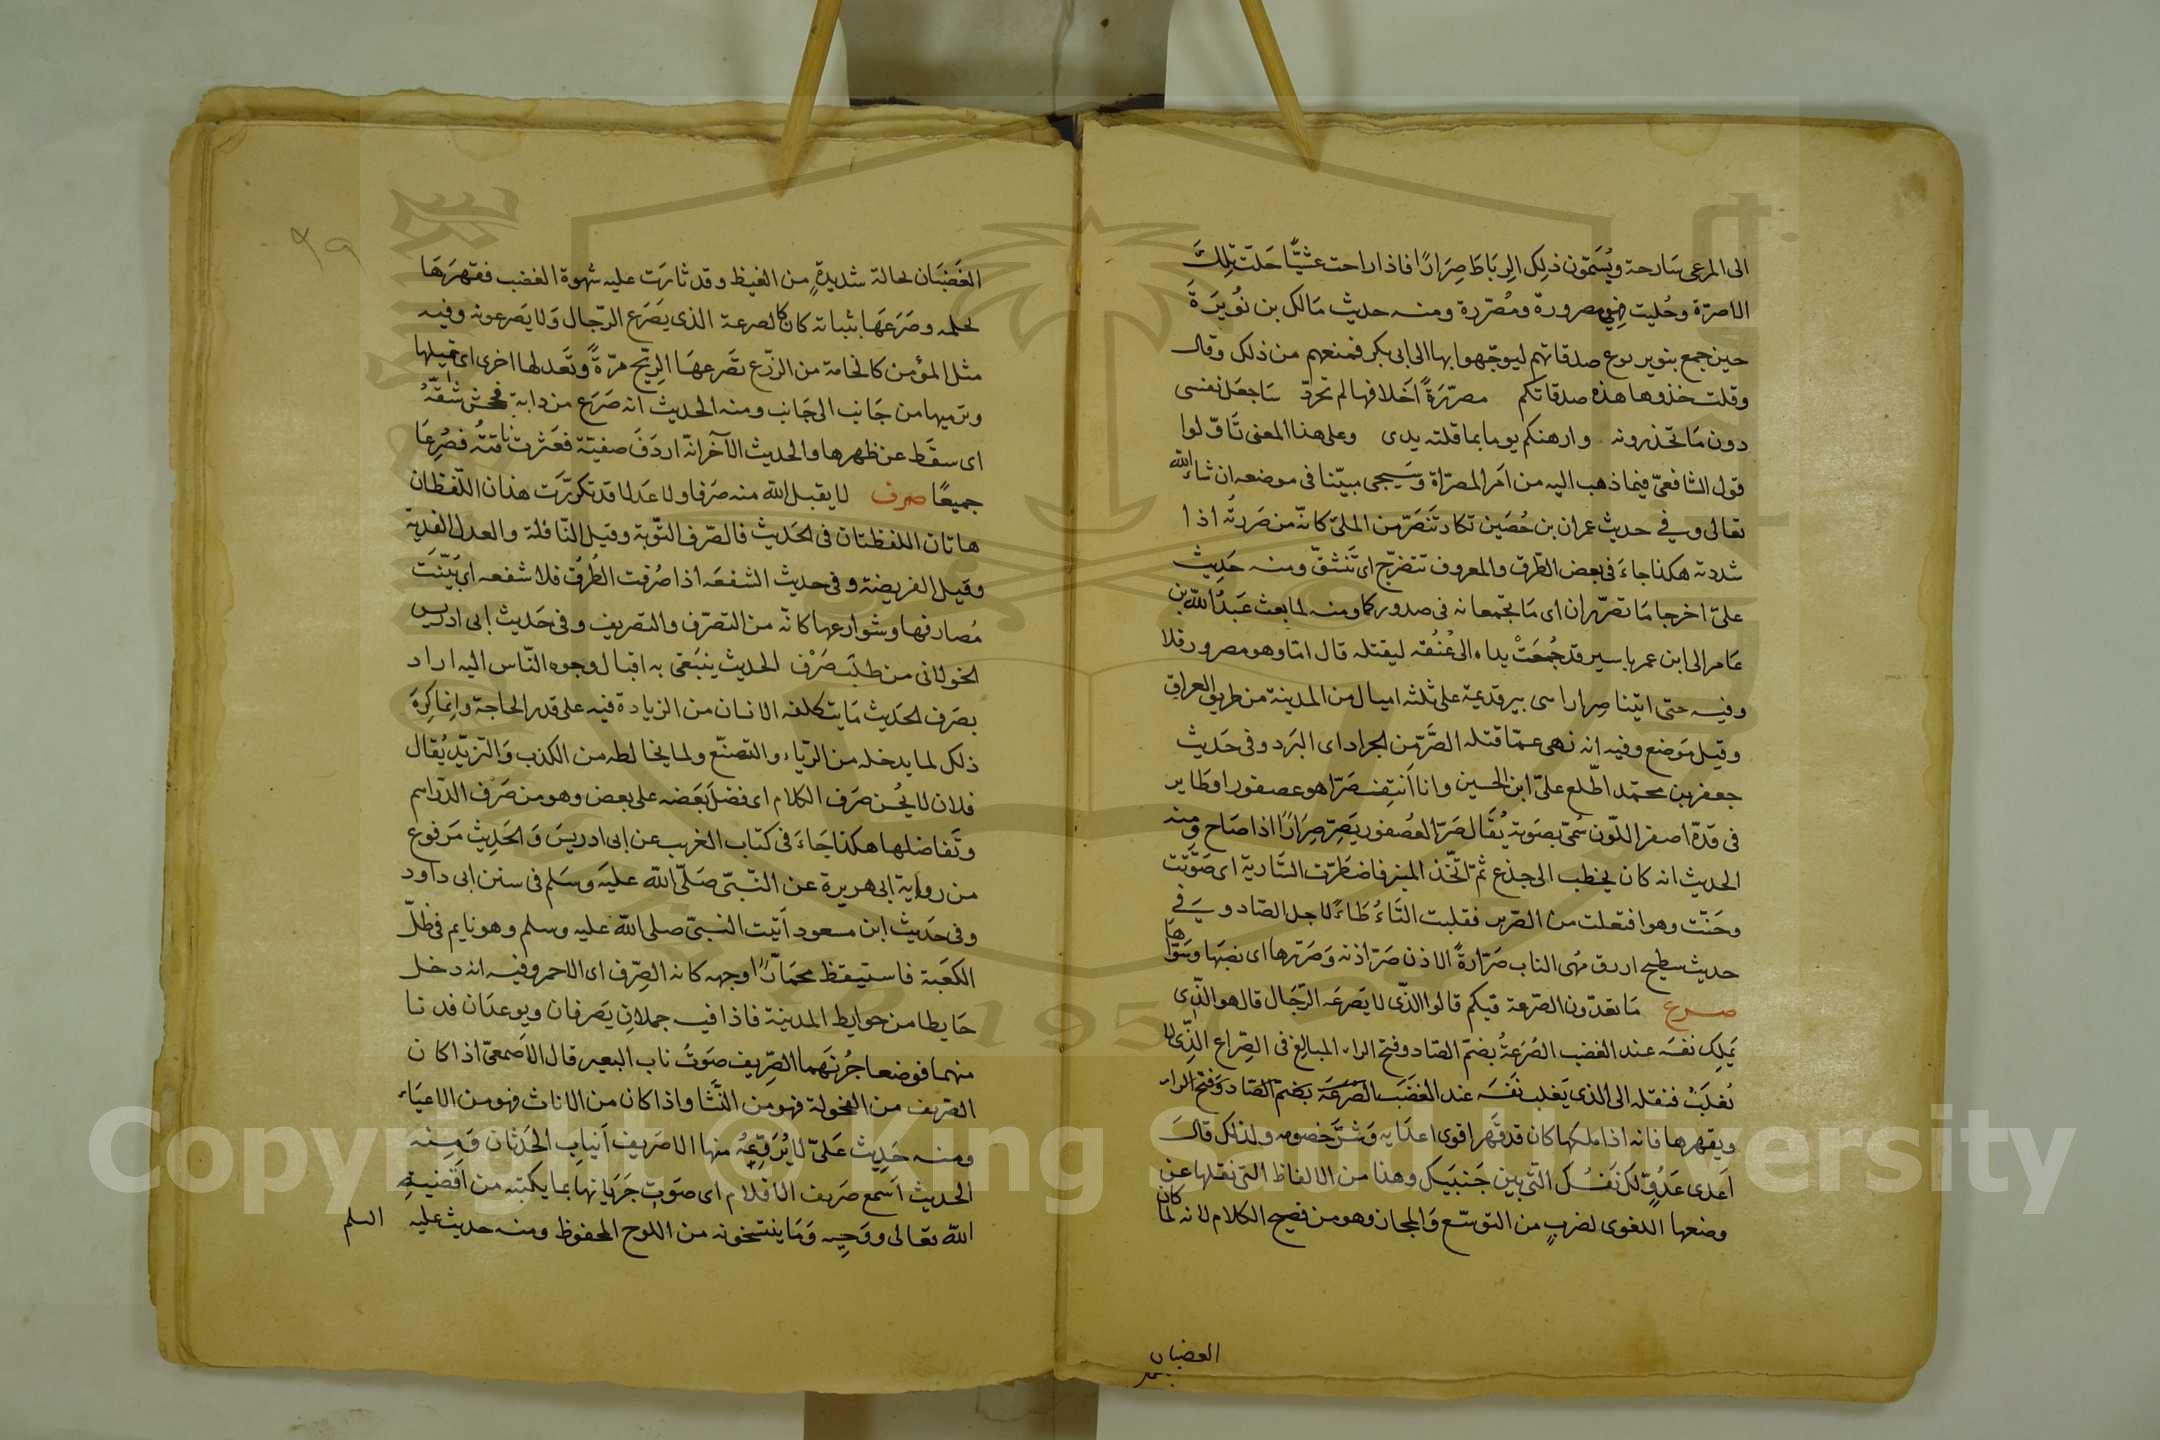 الى المرعى سَارحة ويُسَمّون ذلِك الرِبَاطَ صِرَارًا فاذا راحت عشيًّا حَلّت تِلكَ
الاصرّة وحُلبت فهي مصرورة ومُصّررة ومنه حديث مَالك بن نُوَيرَةَ
حين جمع بنو يربوع صدقاتهم ليوجّهوا بها الى ابى بكر فمنعهم من ذلك وقال
وقلت خذوها هذه صدقاتكم مصرّرَةً اَخلافها لم تحردّ سَاجعَل نفسى
دون مَا تحذرونه وارهنكم يوما بما قلته يدى وعلى هذا المعنى تَاوّلوا
قول الشافعىّ فيما ذهب اليه من اَمر المصرّاة وسَيجى مبيّنا فى موضعه ان شاء الله
تعالى وفي حديث عمران بن حُصَين تكاد تنَصَرّ من الملئ كانّه من صَررتُه اذا
شددته هكذا جاءَ فى بعض الطّرق والمعروف تتضرّج اى تَنشقّ ومنه حَدِيث
علىّ اخرجا مَا تصرّران اى مَا تجمعانه فى صدوركما ومنه لما بعث عَبدُ الله بن
عَامر الى ابن عمر باسير قد جُمعَتْ يداه الى عُنُقه ليقتله قال امّا وهو مصرور فلا
وفيه حتى اتينا صِرارا سى بير قديمة على ثلثه اميال من المدينة من طريق العراق
وقيل مَوضع وفيه انه نهى عمّا قتله الصّرّ من الجراد اى البَرد وفى حَديث
جعفر بن محمّد اطّلع علىّ ابن الحسين وانا اَنتِف صَرّا هو عصفور او طاير
فى قدّه اصفر اللّون سُمىّ بصَوته يُقَال صَرّ العُصفور يَصِرّ صِرَارًا اذا صَاح ومنه
الحديث انه كان يخطب الى جذع ثمّ اتّخذ المنبر فاضطَرّت السَّارية اى صَوّتت
وحَنّت وهو افتعلت من الصّرير فقلبت التَّاءُ طَاءً لاجل الصّاد وفي
حديث سطيح ازرق مُهى الناب صَرّارةً الاذن صَرّ اذنه وَصَرّرها اى نصَبَها وسَوّاها
صرع مَا تعدّون الصّرعة فيكم قالوا الذّى لا يَصرعَه الرّجَال قال هو الذّى
يَملِك نفسَه عند الغضب الصُرَعةُ بضمّ الصّاد وفتح الراء المبالِغ فى الصِّراع الّذِى لا
يُغلَبُ فنقله الى الذى يَغلب نَفسَه عند الغضَب الصرعَة بضمّ الصّاد وَفتح الراء
ويقهرها فانه اذا ملكها كان قد قَهر اقوى اعدَايه وَشرّ خصومه ولذلك قال
اَعدى عَدُوٍّ لَك نَفسُك الّتى بين جَنبَيك وهذا من الالفاظ التى نقلها عن
وضعها اللغوى لضربٍ من التوسّع وَالمجاز وهو من فصيح الكلام لانه لما كان
الغضبان
الغَضبَان بحالة شديدةٍ من الغيظ وقد ثارَت عليه شهوة الغضب فقهرَهَا
بحلمه وصَرَعَهَا بثباته كان كالصرعة الذى يَصَرع الرّجال وَلا يَصرعونه وفيه
مثل المؤمن كالخامة من الزرّع تصَرعهَا الريّح مرّةً وتَعدلها اخرى اى تميلها
وترميها من جَانِب الى جَانِب ومنه الحديث انه صَرَع من دابة فجحش شقّهُ
اى سقَط عن ظهرها والحديث الآخر انّه اردَفَ صفيّة فعَثرت نَاقتُه فصُرِعَا
جميعًا صرف لا يقبل الله منه صَرفا ولا عَدلا قد تكرّرَت هذان اللّفظان
هاتان اللفظتان فى الحَديث فالصّرف التّوبة وقيل النّافلة والعدل الفدية
وقيل الفريضة وفى حديث الشفعَه اذا صُرفت الطُرُق فلا شفعه اى بُيّنَت
مُصارفها وشوارعها كانّه من التصَرّف والتصريف وفى حَديث ابى ادريس
الخولانى من طلبَ صَرْف الحديث يبَتغى به اقبال وجوه النّاس اليه اراد
بصَرف الحَديث مَا يتكلفه الانسان من الزيادة فيه على قدر الحاجة وانِما كِرهَ
ذلك لما يدخله من الريّاء والتصنّع ولما يخالطه من الكذب وَالتزيّد يُقال
فلان لا يحُسن صَرف الكلام اى فضلَ بَعضه على بعض وهو من صَرْف الدّراسم
وتَفاضلها هكذا جَاءَ فى كتاب الغريب عن ابى ادريسَ وَالحَدِيث مَرفوع
من رواية ابى هريرة عن النّبىّ صَلّى الله عليَه وسَلم فى سنن ابى داود
وفى حَديث ابن مسعود اَتيت النبىّ صلى الله عليه وسلم وهو نايم فى ظلّ
الكعَبة فاستيقظ محمَارًّا وجهه كانه الصِّرف اى الاحمر وفيه انه دخل
حَايطا من حوايط المدينة فاذا فيه جملانِ يَصَرفان ويوعدَان فدنا
منهما فوضعا جرُنهَما الصّريف صَوتُ ناب البعير قال الاَصمعىّ اذا كان
الصّريف من الفحولة فهو من النَّشَا واذا كان من الاناث فهو من الاعيَاء
ومنه حَدِيث علَىّ لا يُرَوِّعُه منها الا صَريف اَنيابِ الحَدثان وَمِنه
الحديث اَسمع صَريف الاقلام اى صوَتِ جَرَيانها بما يكتبه من اَقضيةِ
الله تعالى ووَحيِه وَمَا ينتسخونه من اللوح المحفوظ ومنه حديث عليه السلم
Copyright © King Saud University
1957